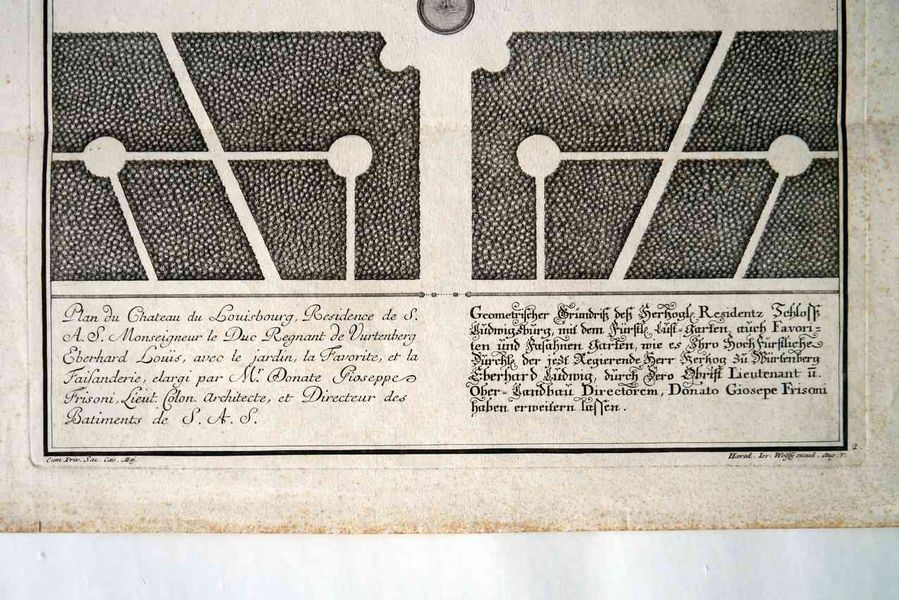 Plan du Chateau du Louisbourg, Residence de S.
A. S. Monseigneur le Duc Regnant de Vurtenberg
Eberhard Louïs, avec le jardin, la Favorite, et la
Faisanderie, elargi par Mr. Donate Gioseppe
Frisoni, Lieut. Colon. Architecte, et Directeur des
Batiments de S. A. S.
Geometrischer Grundriß deß Hertzogl. Residentz Schloss
Ludwigsburg, mit dem Fürstl. Lust-Garten, auch Favori=
ten und Fasahnen Garten, wie es Ihro Hoch Fürstliche
Durchl. der jezt Regierende Herr Hertzog zu Würtenberg
Eberhard Ludwig, durch Dero Obrist Lieutenant u.
Ober-Landbau Directorem, Donato Giosepe Frisoni
haben erweitern lassen.
Cum Priv. Sac. Cæs. Maj.
Hared. Ier. Wolffij excud. Aug. V.
2